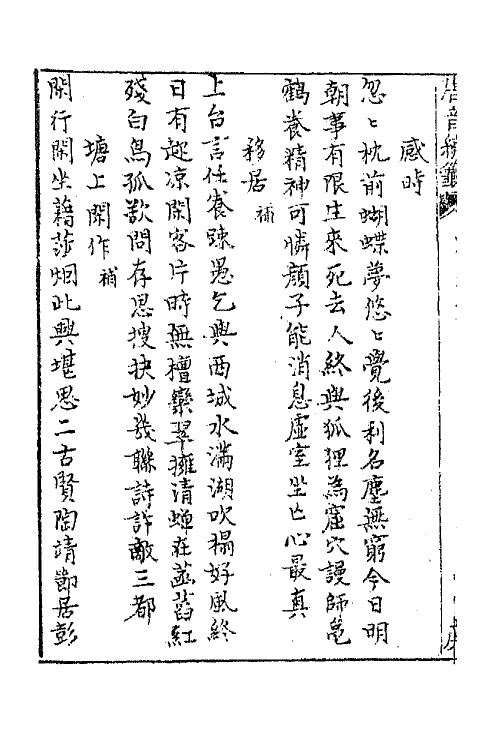 感時
忽〻枕前蝴蝶夢悠〻覺後利名塵無窮今日明
朝事有限生來死去人終與狐狸為窟穴謾師龜
鶴養精神可憐顔子能消息虛室坐亡心最真
移居 補
上台言任養踈愚乞與西城水滿湖吹榻好風終
日有趁凉閑客片時無檣欒翠擁清蟬在菡萏紅
殘白鳥孤欲問存思搜抉妙幾聯詩許敵三都
塘上閑作 補
閑行閑坐藉莎烟此興堪思二古賢陶靖節居彭